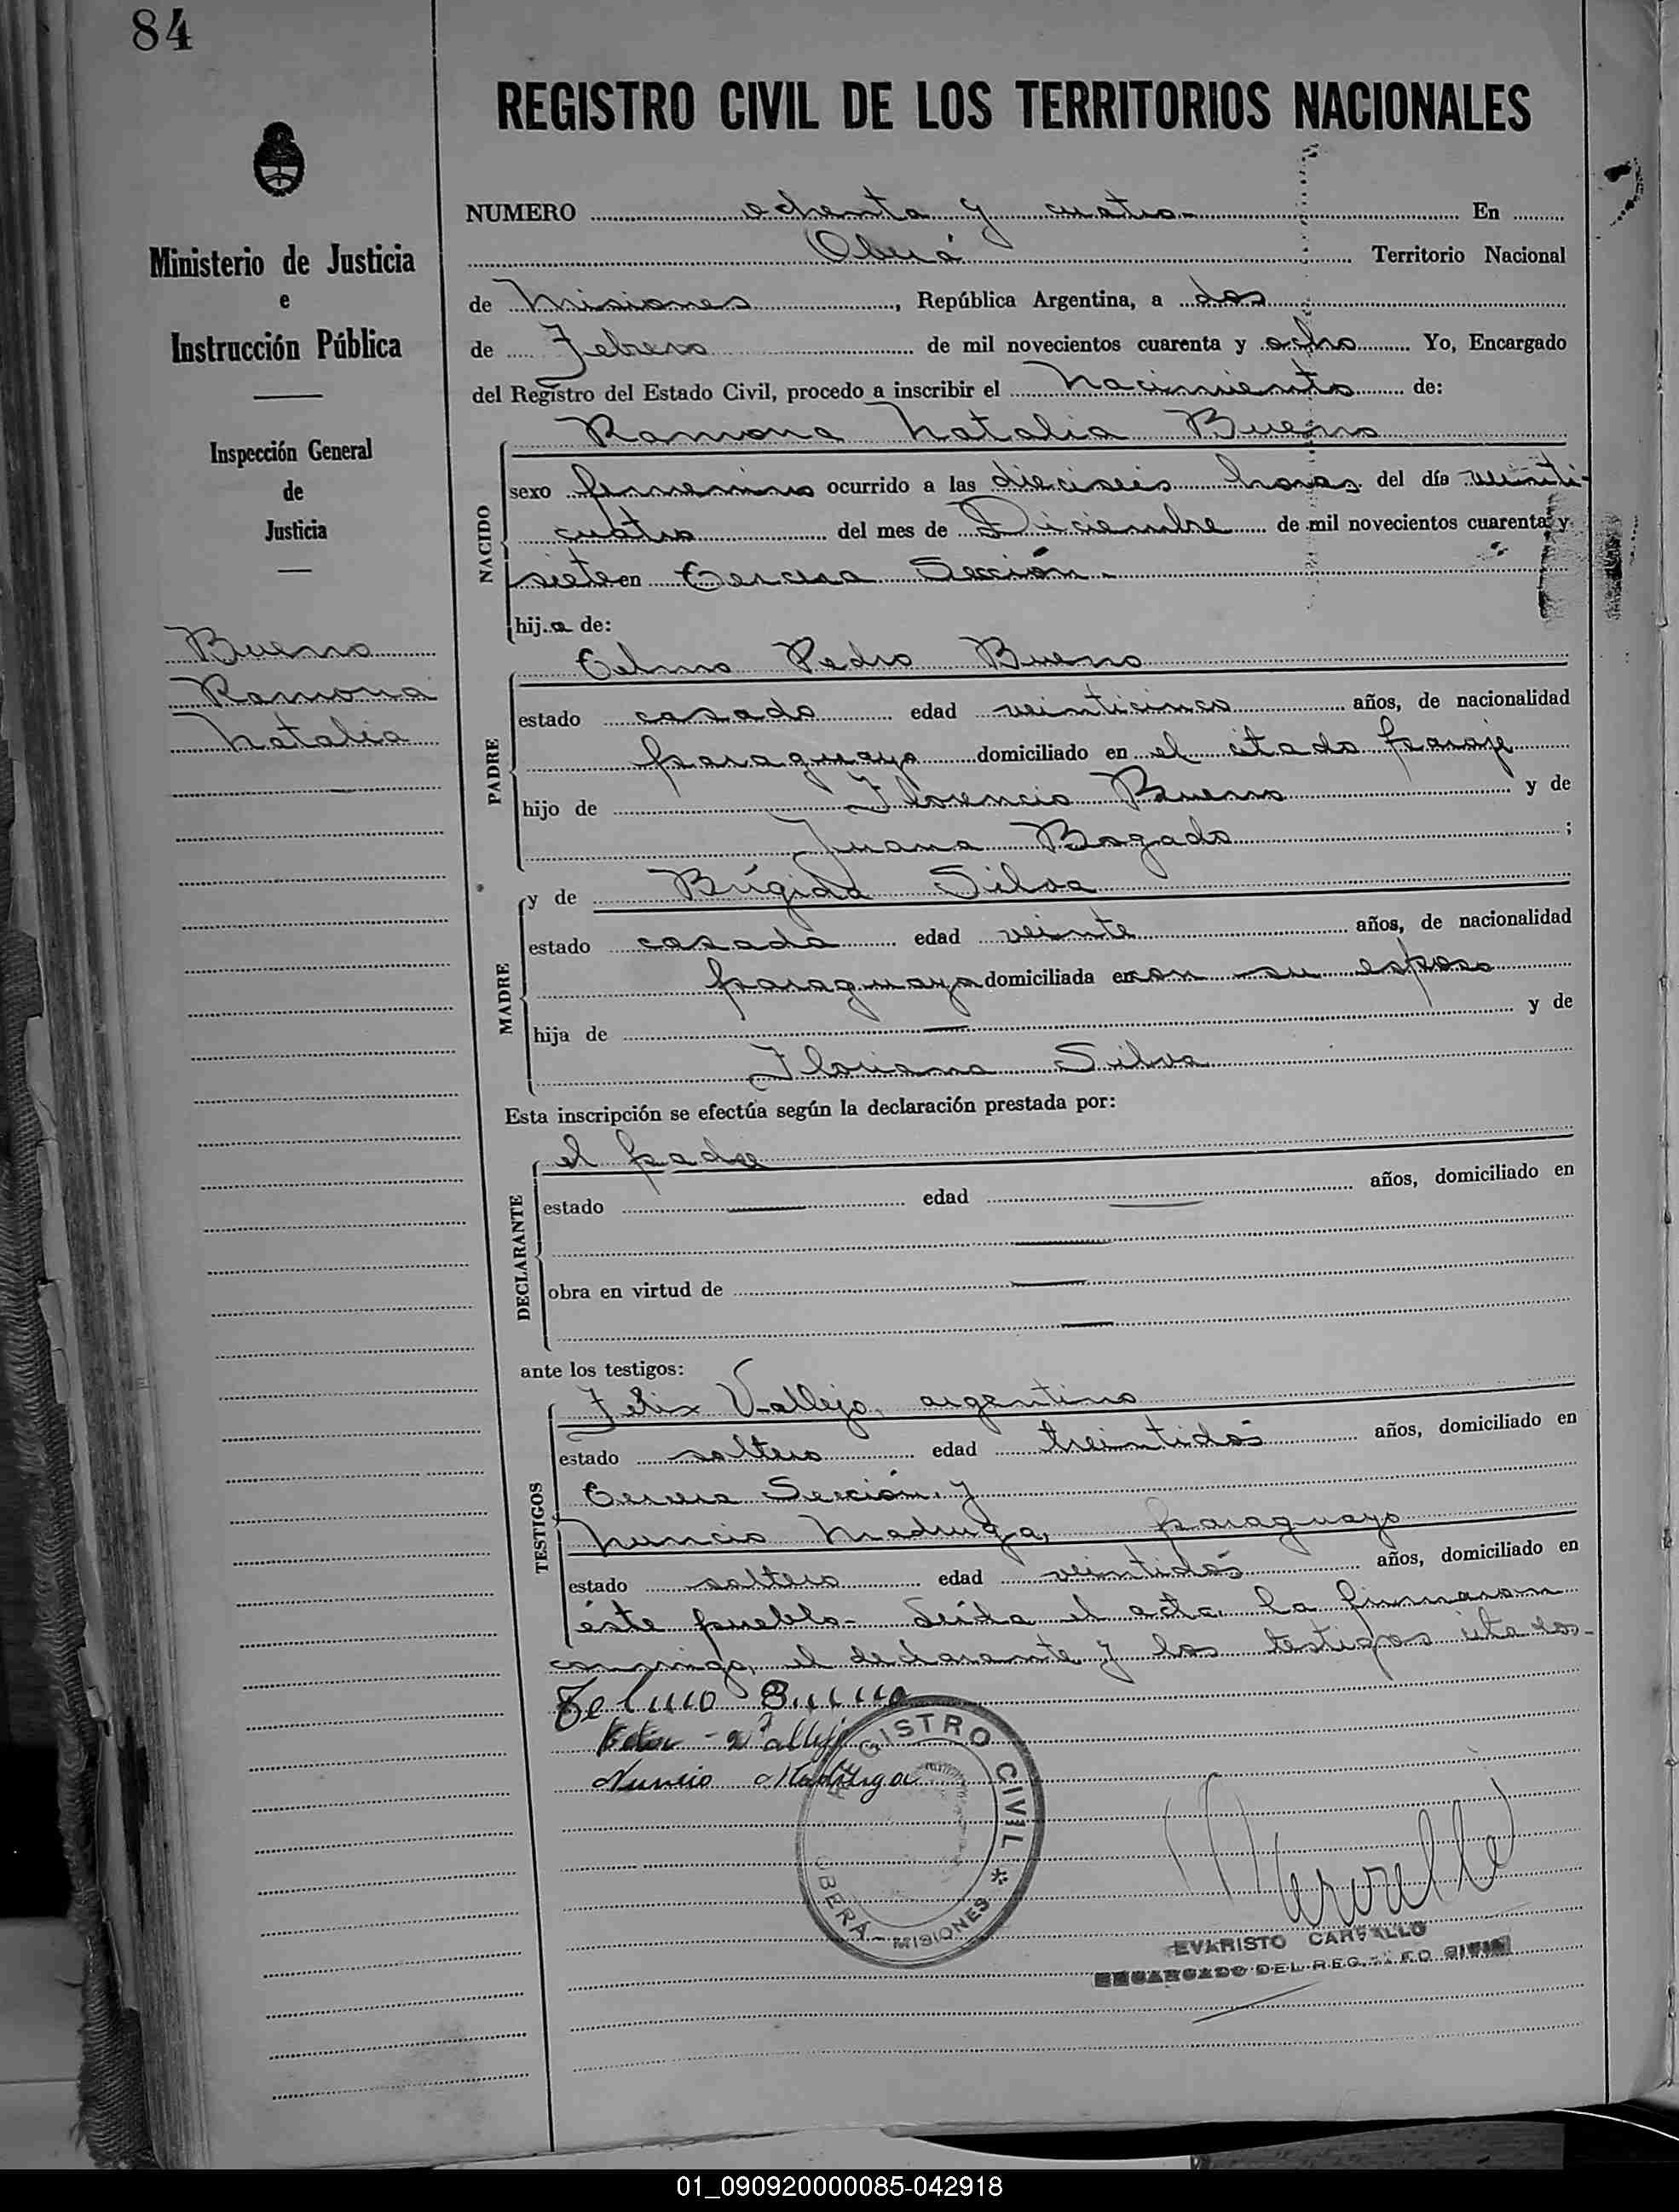 84
REGISTRO CIVIL DE LOS TERRITORIOS NACIONALES
Ministerio de Justicia
e
Instrucción Pública
Inspección General
de
Justicia
Bueno
Ramona
Natalia
NUMERO ochenta y cuatro.- En
Oberá Territorio Nacional
de Misiones, República Argentina, a dos
de Febrero de mil novecientos cuarenta y ocho Yo, Encargado
del Registro del Estado Civil, procedo a inscribir el Nacimiento de:
Ramona Natalia Bueno
NACIDO
sexo femenino ocurrido a las dieciseis horas del día veinti-
cuatro del mes de Diciembre de mil novecientos cuarenta y
siete en Tercera Sección.-
hija de:
Telmo Pedro Bueno
PADRE
estado casado edad veinticinco años, de nacionalidad
paraguayo domiciliado en el citado paraje
hijo de Florencio Bueno y de
Juana Bogado;
y de Brígida Silva
MADRE
estado casada edad veinte años, de nacionalidad
paraguaya domiciliada en con su esposo
hija de — y de
Floriana Silva
Esta inscripción se efectúa según la declaración prestada por:
el padre
DECLARANTE
estado — edad — años, domiciliado en
—
obra en virtud de —
—
ante los testigos:
Felix Vallejo, argentino
TESTIGOS
estado soltero edad treintidós años, domiciliado en
Tercera Sección, y
Nuncio Madruga, paraguayo
estado soltero edad veintidós años, domiciliado en
éste pueblo.- Leída el acta, la firmaron
conmigo, el declarante y los testigos citados.-
Telmo Bueno
Felix Vallejo
Nuncio Madruga
REGISTRO CIVIL * OBERÁ - MISIONES
EVARISTO CARVALLO
ENCARGADO DEL REGISTRO CIVIL
01_090920000085-042918